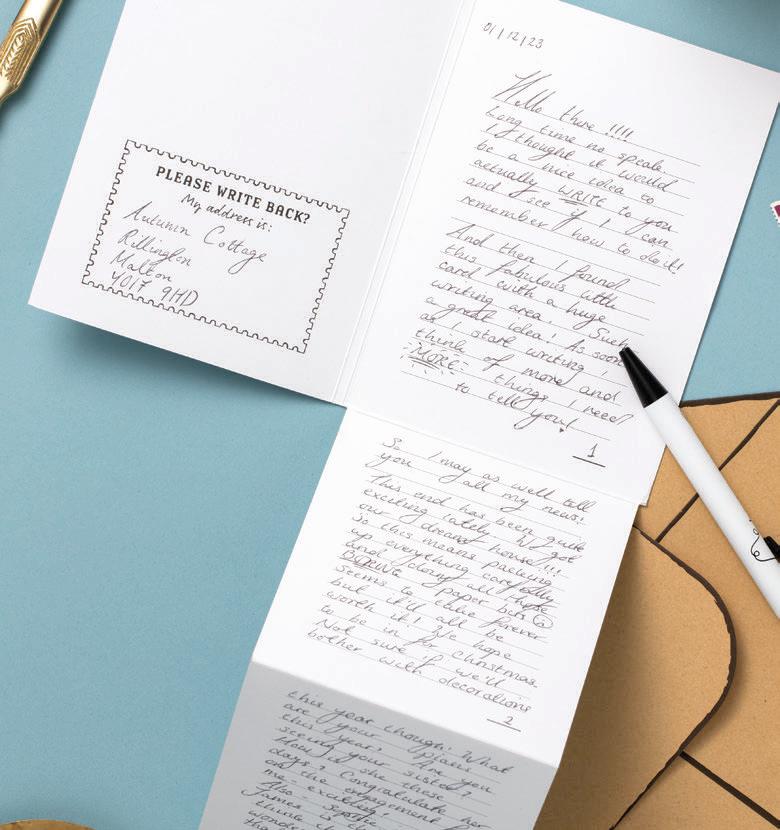 PLEASE WRITE BACK?
My address is:
Autumn Cottage
Rillington
Malton
YO17 9HD
01/12/23
Hello there !!!!
Long time no speak.
I thought it would
be a nice idea to
actually WRITE to you
and see if I can
remember how to do it!
And then I found
this fabulous little
card with a huge
writing area. Such
a great idea! As soon
as I start writing I
think of more and
MORE things I need
to tell you!
1
So I may as well tell
you all my news!
This end has been quite
exciting lately. We got
our dream house!!!
So this means packing
up everything carefully
and doing all
BORING paper bits
seems to take forever
but it'll all be
worth it! We hope
to be in for Christmas.
Not sure if we'll
bother with decorations
2
this year though! What
are your plans
this year? Are you
seeing your sister?
How is she these
days? Congratulate her
on the engagement
me. exciting!
Also
James is
think it
wonder